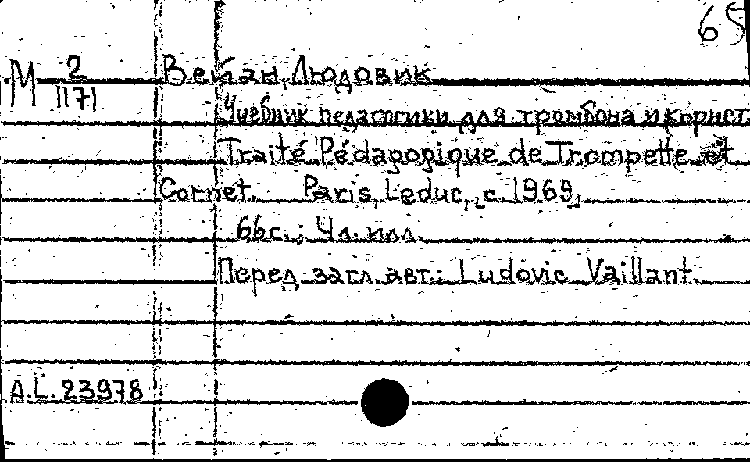 65
М 2/1171 Вейан, Людовик
Учебник педагогики для тромбона и корнет
Traité Pédagogique de Trompette et
Cornet. Paris, Leduc, c. 1969,
66с.; Ил. илл.
Перед загл. авт.: Ludovic Vaillant.
A.L. 23978